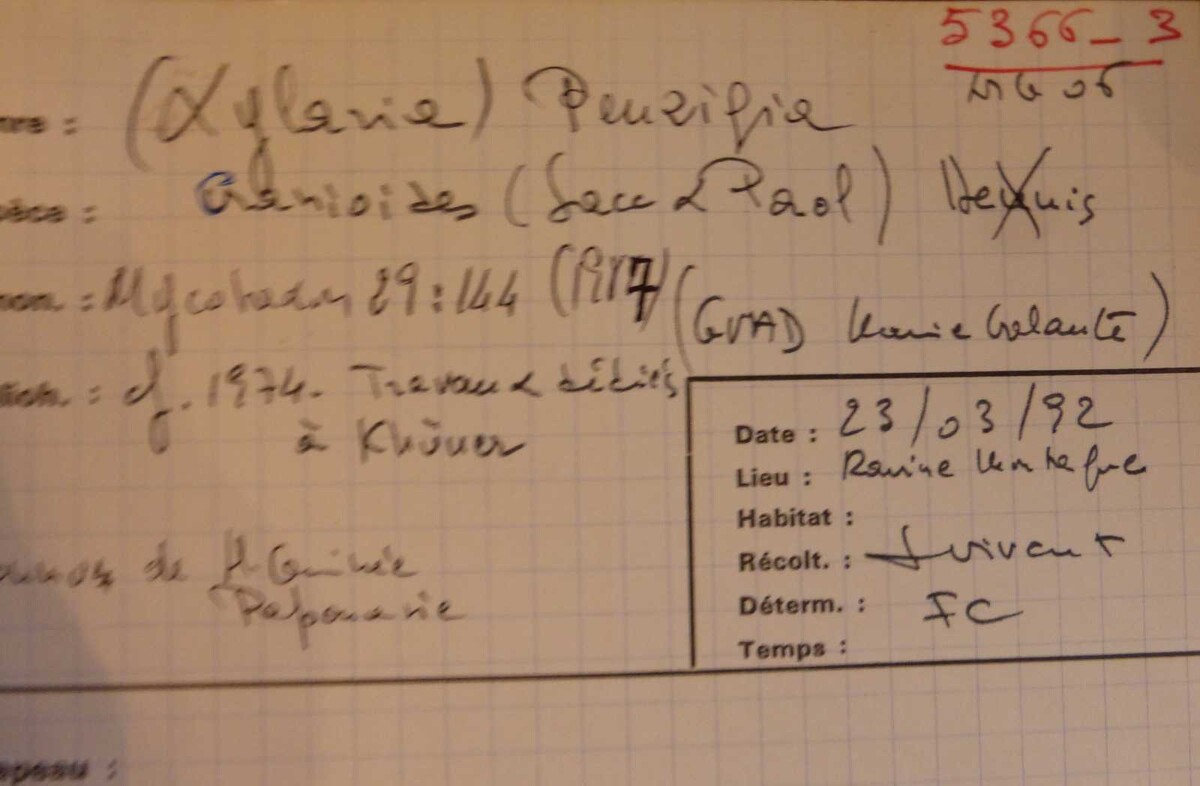 5366_3
nre : (Xylaria) Penzigia
pèce : Cranioides (Sacc & Paol) Dennis
non. : 29:144 (1957) (GUAD Marie Galante)
cf. 1974. Travaux dédiés
à Khüner
de Guinée
Date : 23/03/92
Lieu : Ravine
Habitat :
Récolt. : Suivant
Déterm. : FC
Temps :
apeau :